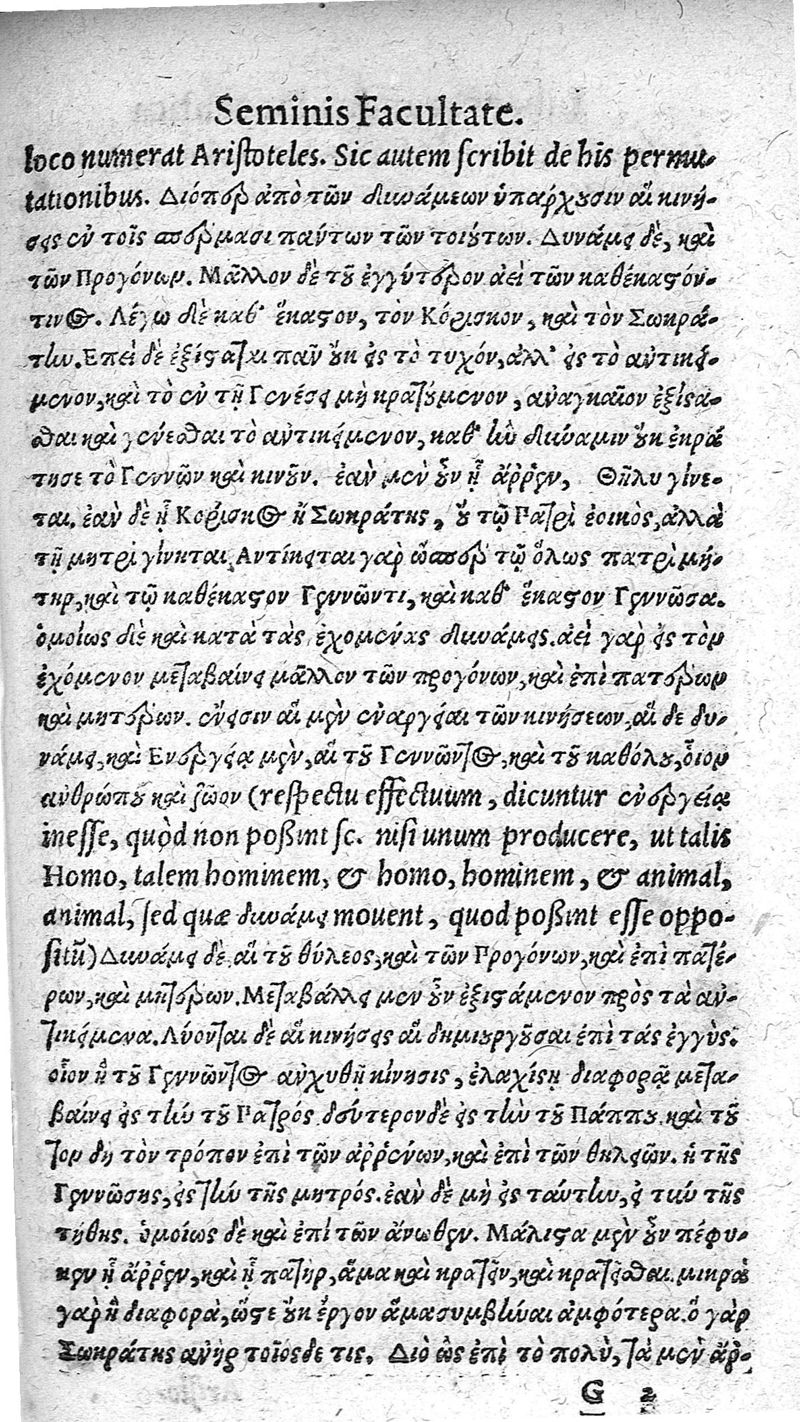 Seminis Facultate.
loco numerat Aristoteles. Sic autem scribit de his permu-
tationibus. Διόπερ ἀπὸ τῶν δυνάμεων ὑπάρχουσιν αἱ κινή-
σεις ἐν τοῖς σπέρμασι πάντων τῶν τοιούτων. Δυνάμει δὲ, καὶ
τῶν Προγόνων. Μᾶλλον δὲ τοῦ ἐγγύτερον ἀεὶ τῶν καθέκαστόν-
τινος. Λέγω δὲ καθ' ἕκαστον, τὸν Κόρισκον, καὶ τὸν Σωκρά-
την. Ἐπεὶ δὲ ἐξίσταται πᾶν οὐκ εἰς τὸ τυχόν, ἀλλ' εἰς τὸ ἀντικεί-
μενον, καὶ τὸ ἐν τῇ Γενέσει μὴ κρατούμενον, ἀναγκαῖον ἐξίστα-
σθαι καὶ γενέσθαι τὸ ἀντικείμενον, καθ' ἣν δύναμιν οὐκ ἐκρά
τησε τὸ Γεννῶν καὶ κινοῦν. ἐὰν μὲν οὖν ᾖ ἄῤῥεν, Θῆλυ γίνε-
ται. ἐὰν δὲ ᾖ Κορίσκος ἢ Σωκράτης, οὐ τῷ Πατρὶ ἐοικὸς, ἀλλὰ
τῇ μητρὶ γίνηται. Αντίκειται γὰρ ὥσπερ τῷ ὅλως πατρὶ μή-
τηρ, καὶ τῷ καθέκαστον Γεννῶντι, καὶ καθ' ἕκαστον Γεννῶσα.
ὁμοίως δὲ καὶ κατὰ τὰς ἐχομένας δυνάμεις. ἀεὶ γὰρ εἰς τὸν
ἐχόμενον μεταβαίνει μᾶλλον τῶν προγόνων, καὶ ἐπὶ πατέρων
καὶ μητέρων. ἔνεισιν αἱ μὲν ἐναργείαι τῶν κινήσεων, αἱ δὲ δυ-
νάμει, καὶ Ενεργείᾳ μὲν, αἱ τοῦ Γεννῶντος, καὶ τοῦ καθόλου, οἷον
ἀνθρώπου καὶ ζῶον (respectu effectuum, dicuntur ἐνεργείᾳ
inesse, quòd non poßint sc. nisi unum producere, ut talis
Homo, talem hominem, & homo, hominem, & animal,
animal, sed quæ δυνάμει movent, quod poßint esse oppo-
sitũ) Δυνάμει δὲ αἱ τοῦ θύλεος, καὶ τῶν Προγόνων, καὶ ἐπὶ πατέ-
ρων, καὶ μητέρων. Μεταβάλλει μὲν οὖν ἐξιστάμενον πρὸς τὰ ἀν-
τικείμενα. Λύονται δὲ αἱ κινήσεις αἱ δημιουργοῦσαι ἐπὶ τάς ἐγγὺς.
οἷον ἡ τοῦ Γεννῶντος ἀνχυθῇ κίνησις, ἐλαχίστη διαφορᾷ μετα-
βαίνει εἰς τὴν τοῦ Πατρός. δεύτερον δὲ εἰς τὴν τοῦ Πάππου. καὶ τοῦ
τον δη τὸν τρόπον ἐπὶ τῶν ἀῤῥένων, καὶ ἐπὶ τῶν θηλειῶν. ἡ τῆς
Γεννώσης, εἰς τὴν τῆς μητρός. ἐὰν δὲ μὴ εἰς ταύτην, εἰ την τῆς
τήθης. ὁμοίως δὲ καὶ ἐπὶ τῶν ἄνωθεν. Μάλιστα μὲν οὖν πέφυ-
κεν ᾗ ἄῤῥεν, καὶ ᾗ πατὴρ, ἅμα καὶ κρατεῖν, καὶ κρατεῖσθαι. μικρὰ
γὰρ ἡ διαφορὰ, ὥστε οὐκ ἔργον ἅμα συμβῆναι ἀμφότερα. ὁ γὰρ
Σωκράτης ἀνὴρ τοῖος δε τις. Διὸ ὡς ἐπὶ τὸ πολὺ, τὰ μὲν ἄῤ-
G 2